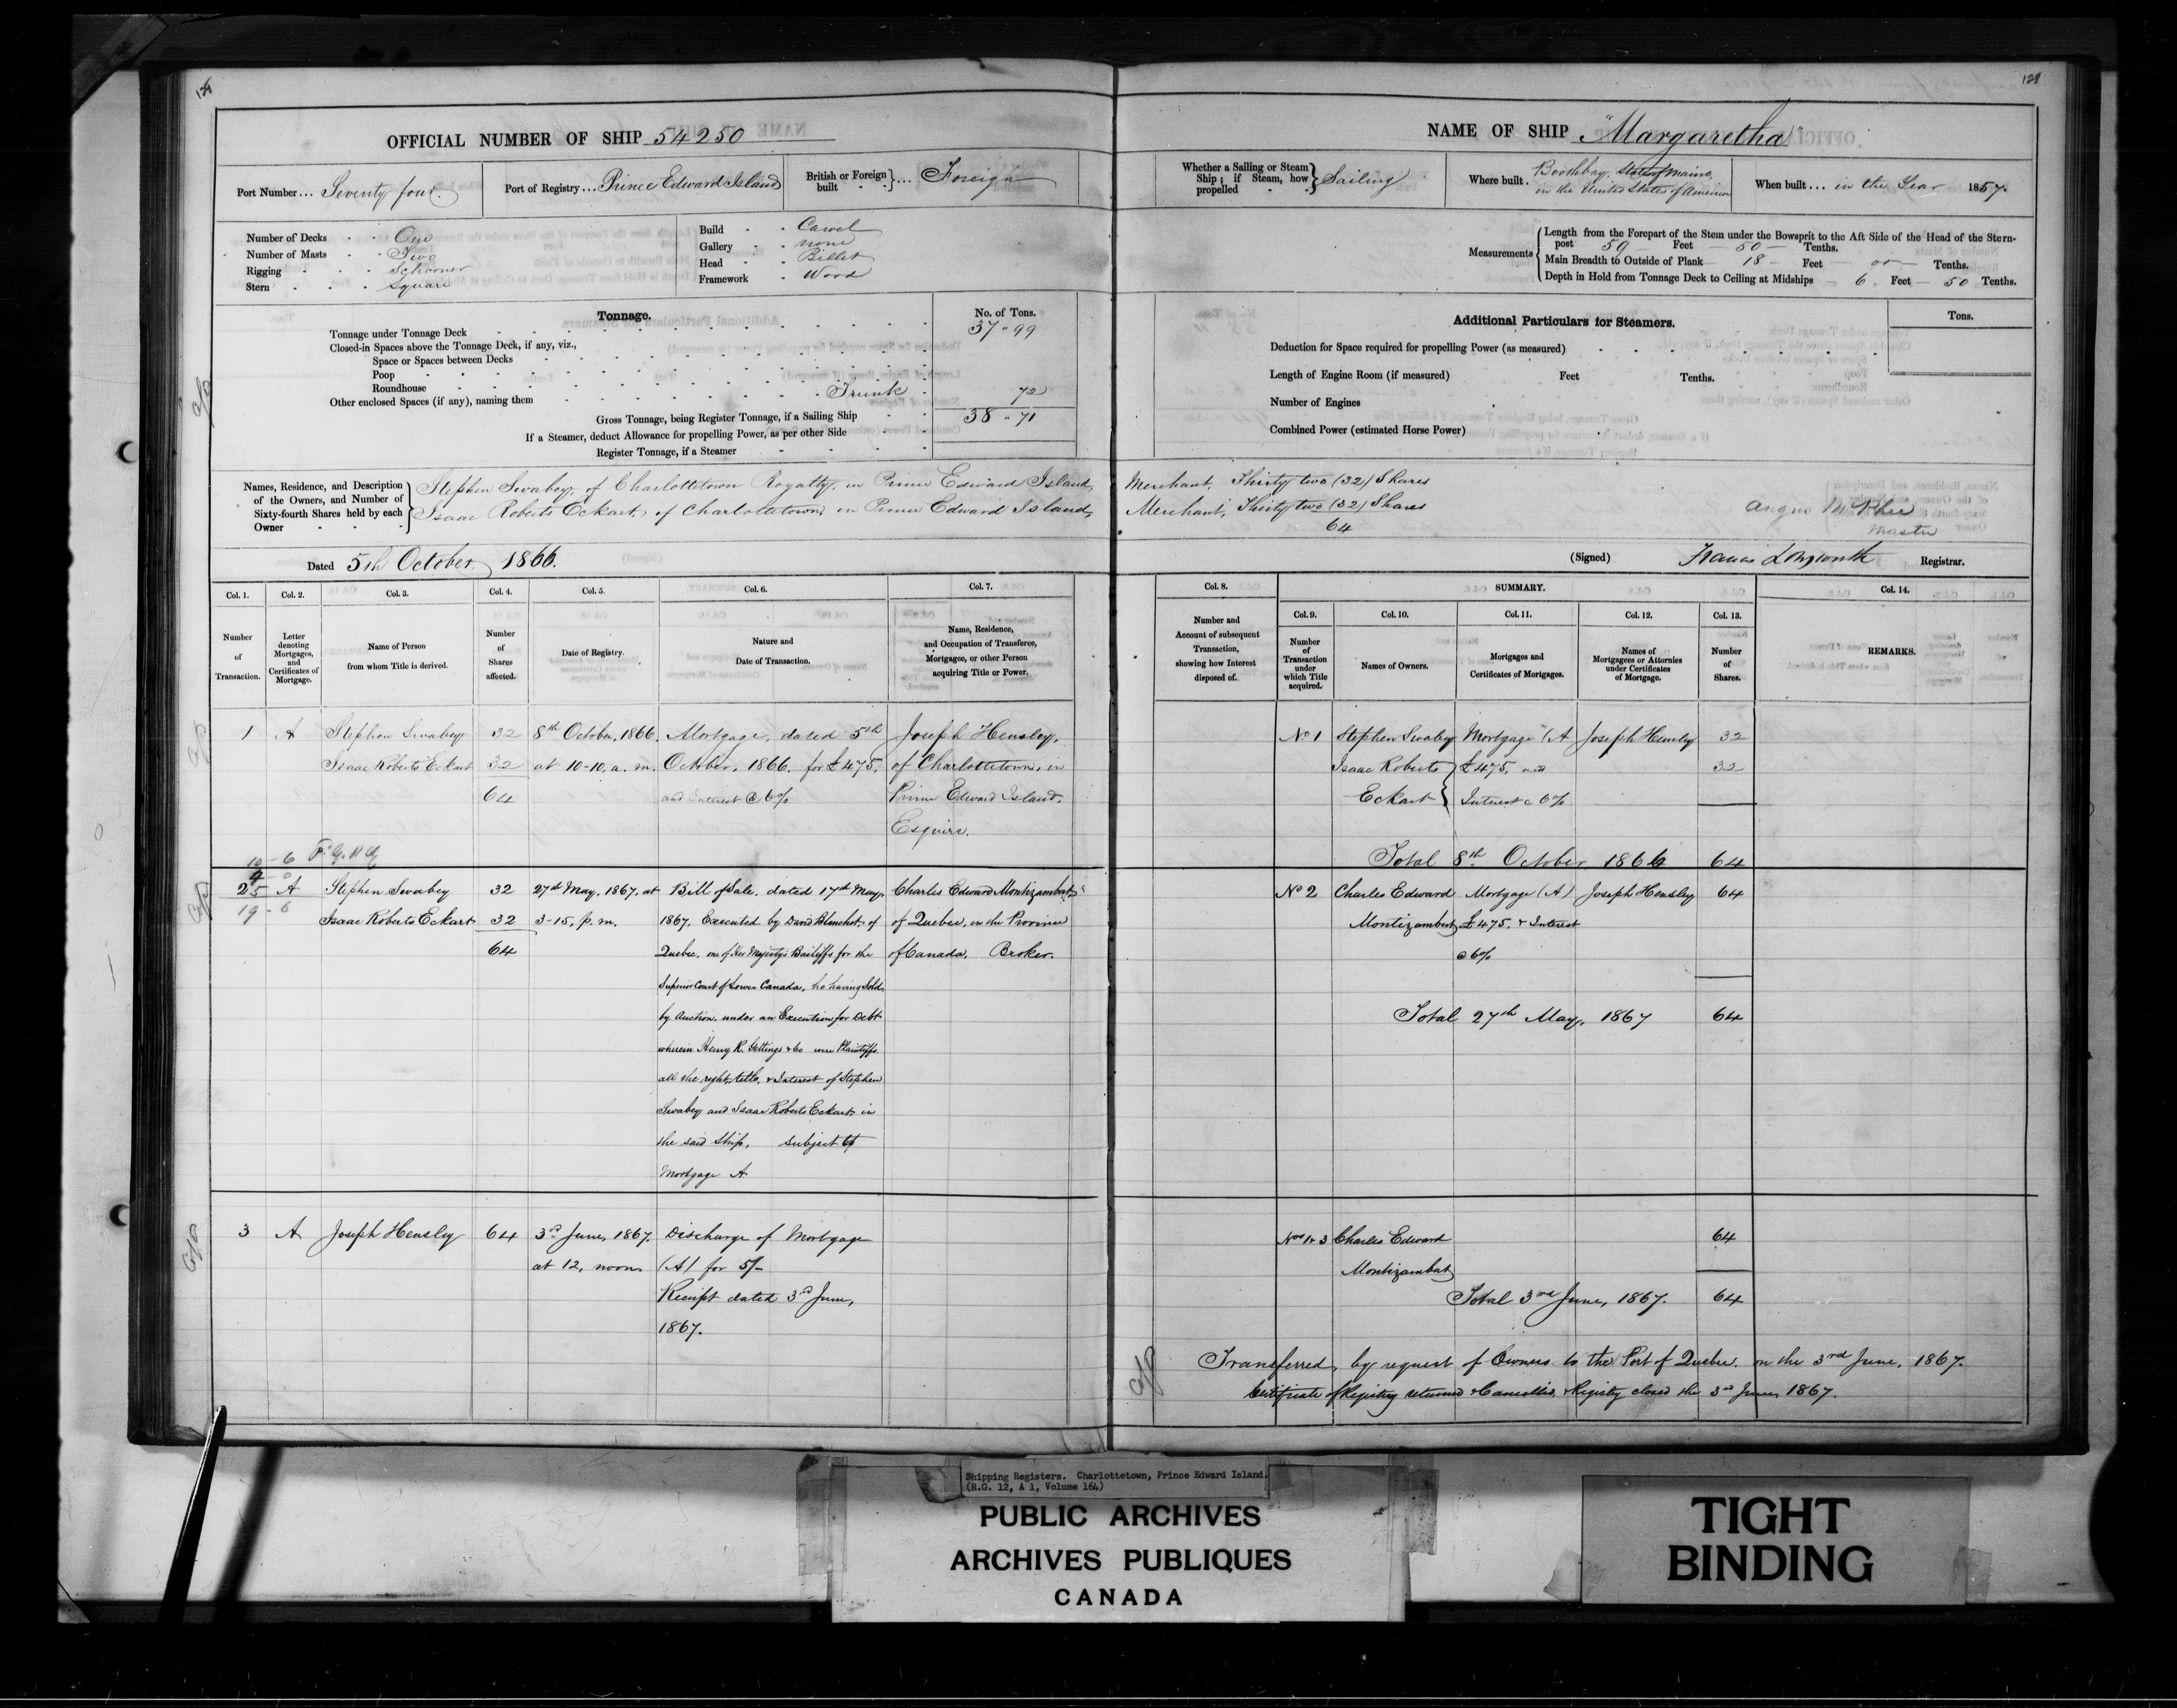 128
OFFICIAL NUMBER OF SHIP 54250
Port Number... Seventy four.
Port of Registry... Prince Edward Island
British or Foreign built } ... Foreign
Number of Decks - - One
Number of Masts - - Two
Rigging - - - Schooner
Stern - - - Square
Build - - Carvel
Gallery - - none
Head - - Billet
Framework - Wood
Tonnage.
No. of Tons.
Tonnage under Tonnage Deck 37 " 99
Closed-in Spaces above the Tonnage Deck, if any, viz.,
Space or Spaces between Decks
Poop
Roundhouse
Other enclosed Spaces (if any), naming them Trunk 72
Gross Tonnage, being Register Tonnage, if a Sailing Ship 38 " 71
If a Steamer, deduct Allowance for propelling Power, as per other Side
Register Tonnage, if a Steamer
Names, Residence, and Description of the Owners, and Number of Sixty-fourth Shares held by each Owner
Stephen Swabey, of Charlottetown Royalty, in Prince Edward Island,
Isaac Roberts Eckart, of Charlottetown, in Prince Edward Island,
Dated 5th October, 1866.
Col. 1. Col. 2. Col. 3. Col. 4. Col. 5. Col. 6. Col. 7.
Number of Transaction.
Letter denoting Mortgages, and Certificates of Mortgage.
Name of Person from whom Title is derived.
Number of Shares affected.
Date of Registry.
Nature and Date of Transaction.
Name, Residence, and Occupation of Transferee, Mortgagee, or other Person acquiring Title or Power.
1 A Stephen Swabey 32 8th October, 1866, Mortgage, dated 5th Joseph Hensley,
Isaac Roberts Eckart 32 at 10-10, a. m. October, 1866. for £475, of Charlottetown, in
64 and Interest @ 6% Prince Edward Island,
Esquire.
10 - 6
2 A Stephen Swabey 32 27th May, 1867, at Bill of Sale, dated 17th May, Charles Edward Montizambert,
19 - 6 Isaac Roberts Eckart 32 3-15, p. m. 1867, Executed by David Blanchet, of of Quebec, in the Province
64 Quebec, one of Her Majesty's Bailiffs for the of Canada, Broker.
Superior Court of Lower Canada, he having Sold
by Auction, under an Execution for Debt
wherein Henry R. Gettings & Co were Plaintiffs
all the right, title, & Interest of Stephen
Swabey and Isaac Roberts Eckart in
the said Ship, subject to
Mortgage A
3 A Joseph Hensley 64 3rd June, 1867, Discharge of Mortgage
at 12, noon (A) for 5/-
Receipt dated 3rd June,
1867.
128
NAME OF SHIP "Margaretha"
Whether a Sailing or Steam Ship; if Steam, how propelled } Sailing
Where built. Boothbay, State of Maine, in the United States of America
When built... in the Year 1857.
Measurements
Length from the Forepart of the Stem under the Bowsprit to the Aft Side of the Head of the Stern-
post 59 Feet 50 Tenths.
Main Breadth to Outside of Plank 18 Feet 00 Tenths.
Depth in Hold from Tonnage Deck to Ceiling at Midships 6 Feet 50 Tenths.
Additional Particulars for Steamers.
Tons.
Deduction for Space required for propelling Power (as measured)
Length of Engine Room (if measured) Feet Tenths.
Number of Engines
Combined Power (estimated Horse Power)
Merchant, Thirty two (32) Shares
Merchant, Thirty two (32) Shares
64
Angus McPhee
Master
(Signed) Francis Longworth Registrar.
Col. 8. SUMMARY. Col. 14.
Col. 9. Col. 10. Col. 11. Col. 12. Col. 13.
Number and Account of subsequent Transaction, showing how Interest disposed of.
Number of Transaction under which Title acquired.
Names of Owners.
Mortgages and Certificates of Mortgages.
Names of Mortgagees or Attornies under Certificates of Mortgage.
Number of Shares.
REMARKS.
No 1 Stephen Swabey Mortgage (A Joseph Hensley 32
Isaac Roberts £475, and 32
Eckart Interest @ 6%
Total 8th October 1866 64
No 2 Charles Edward Mortgage (A) Joseph Hensley 64
Montizambert £475, & Interest
@ 6%
Total 27th May, 1867 64
Nos 1 & 3 Charles Edward 64
Montizambert
Total 3rd June, 1867. 64
Transferred, by request of Owners to the Port of Quebec, on the 3rd June, 1867.
Certificate of Registry returned & Cancelled, & Registry closed the 3rd June, 1867.
Shipping Registers. Charlottetown, Prince Edward Island.
(R.G. 12, A 1, Volume 164)
PUBLIC ARCHIVES
ARCHIVES PUBLIQUES
CANADA
TIGHT
BINDING